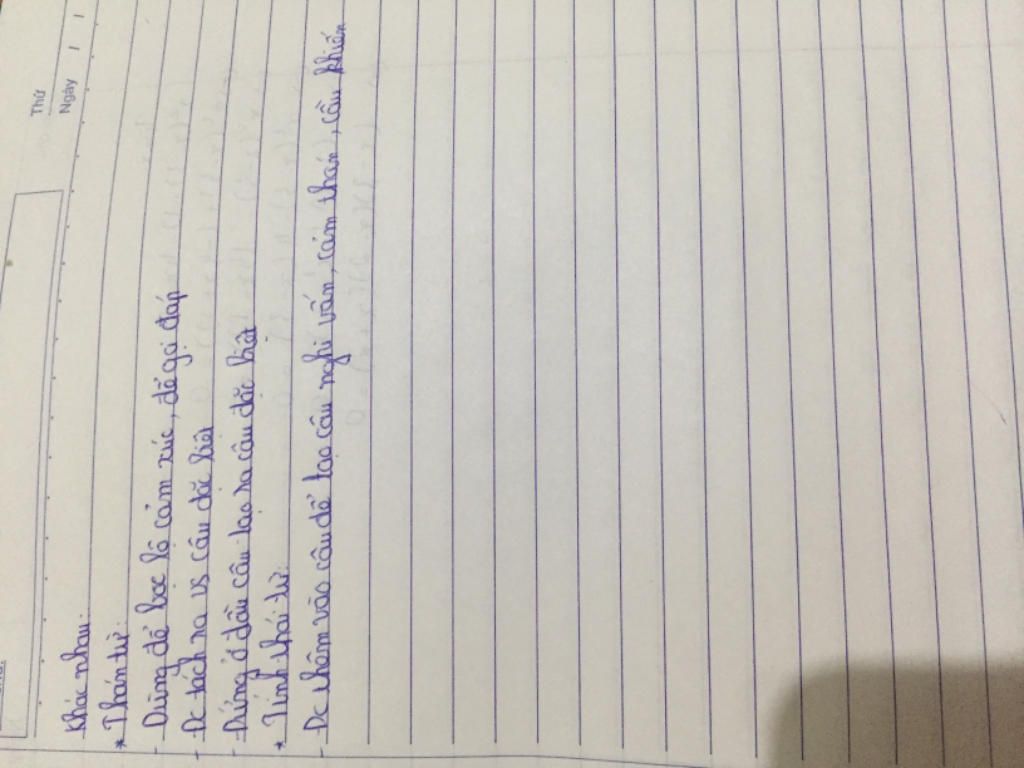 Thứ
Ngày / /
Khác nhau:
* Thán từ:
- Dùng để bọc lộ cảm xúc, để gọi đáp
- Đc tách ra vs câu đặc biệt
- Đứng ở đầu câu tạo ra câu đặc biệt
* Tình thái từ:
- Đc thêm vào câu để tạo câu nghi vấn, cảm thán, cầu khiến